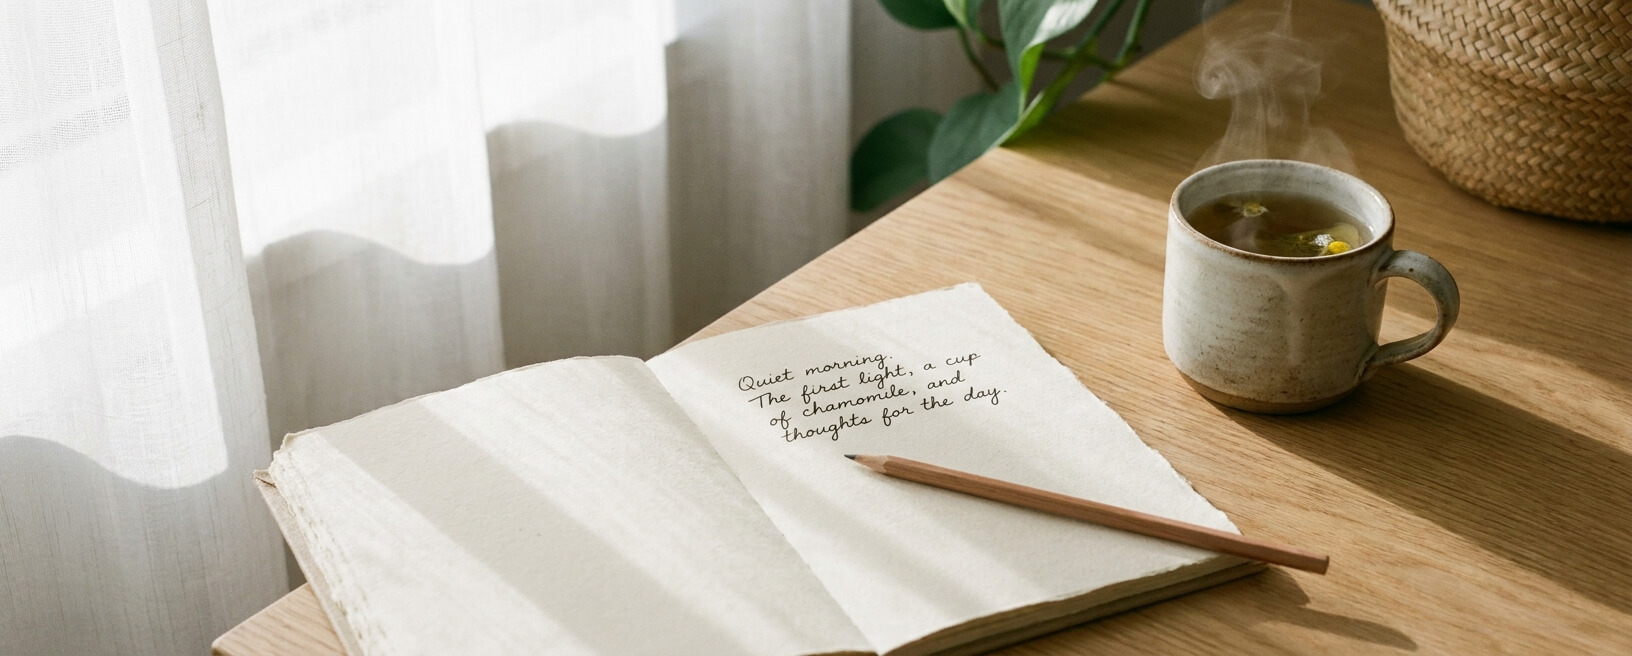 Quiet morning.
The first light, a cup
of chamomile, and
thoughts for the day.